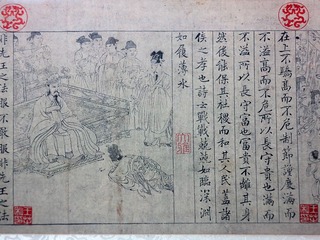 在上不驕高而不危制節謹度滿而
不溢高而不危所以長守貴也滿而
不溢所以長守富也富貴不離其身
然後能保其社稷而和其人民蓋諸
侯之孝也詩云戰戰兢兢如臨深淵
如履薄氷
非先王之法服不敢服非先王之法